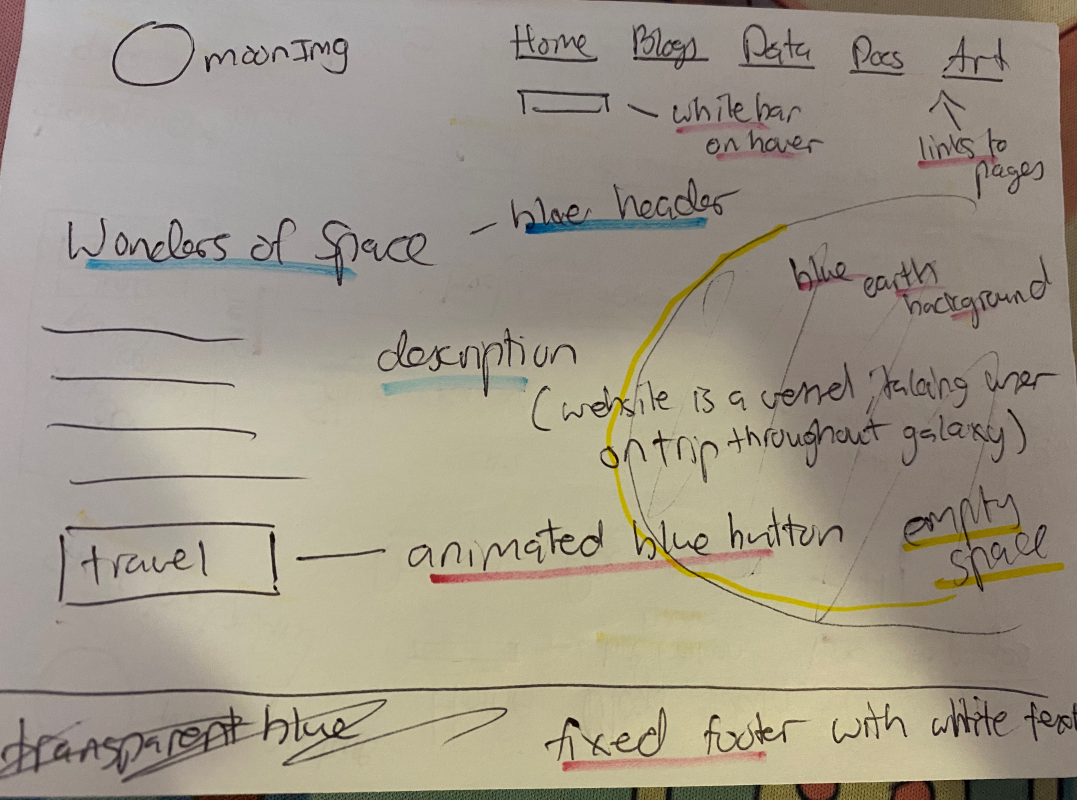 moonImg
Home Blogs Data Docs Art
white bar
on hover
links to
pages
Wonders of Space - blue header
blue earth
background
description
(website is a vessel, taking user
on trip throughout galaxy)
travel
animated blue button
empty
space
transparent blue
fixed footer with white text